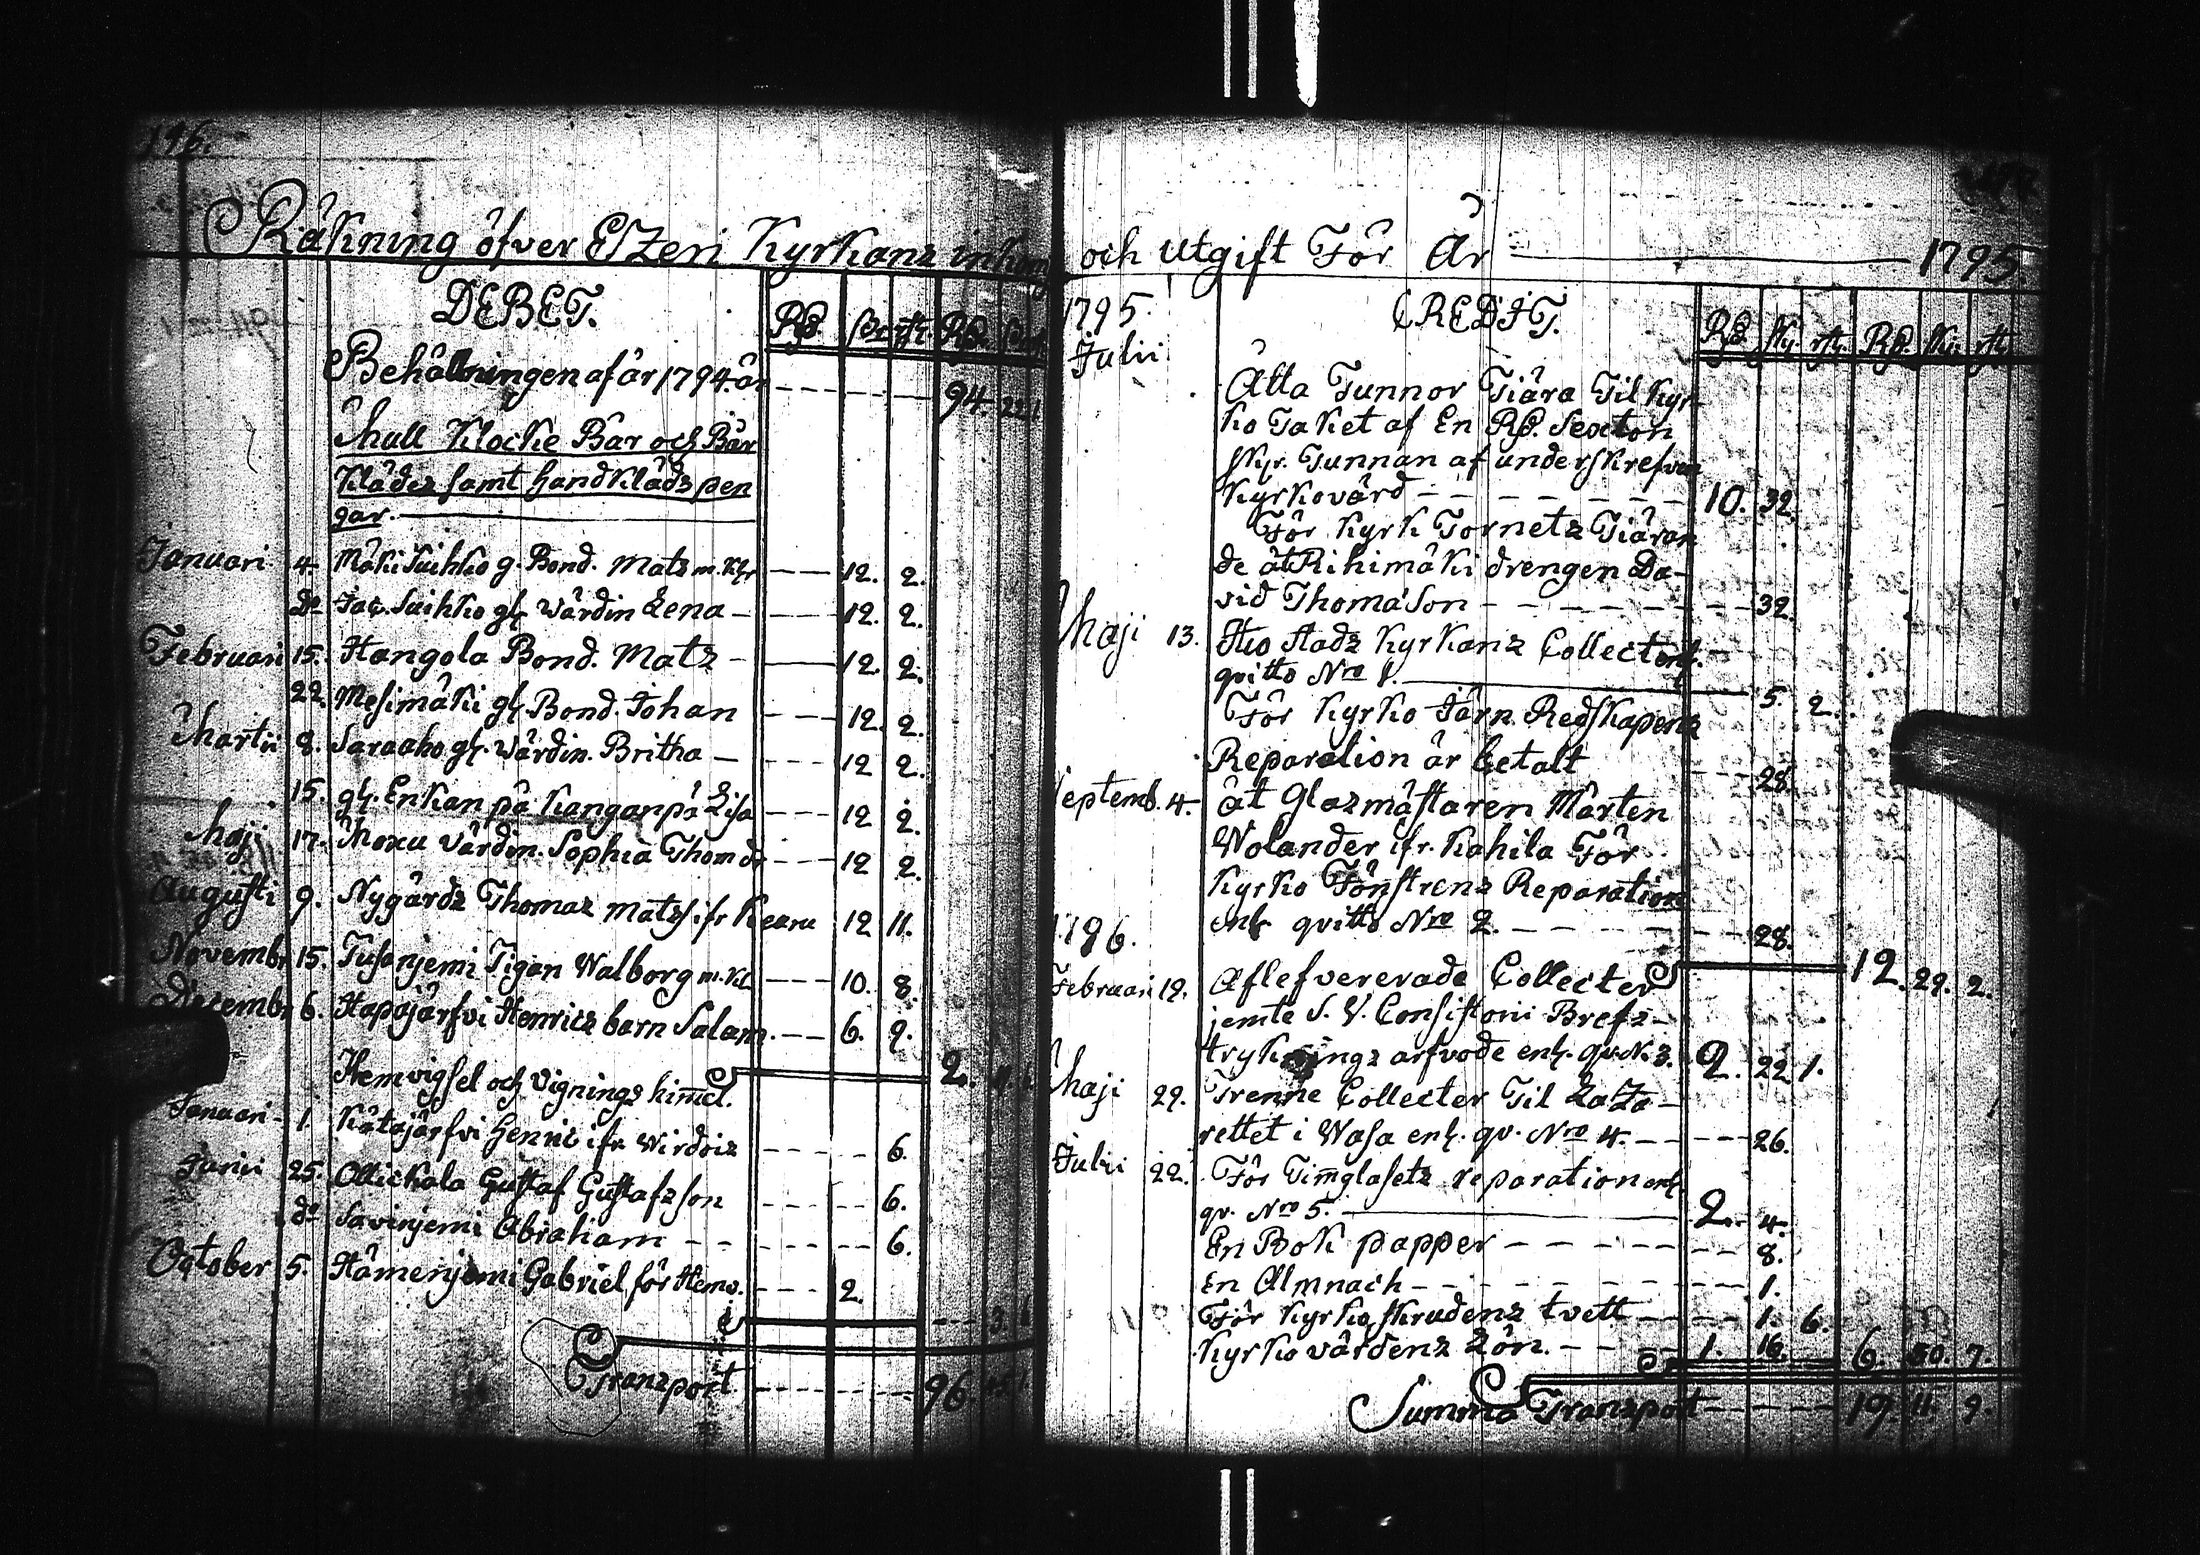 146.
Räkning öfver Etzeri Kyrkans inkomst
DEBET. Rd. Rd.
Behållningen af år 1794 är - - - 94. 22.
Mull Klocke Bår och Bår
Kläder samt handklädz pen
gar.
Januari 4. Mäki Suihko g. Bond. Matz m. Kl. - - - 12. 2.
Do Jac. Suihko gl. Wärdin Lena - - - 12. 2.
Februari 15. Hangola Bond. Matz - - - 12. 2.
22. Mesimäki gl. Bond. Johan - - - 12. 2.
Martii 8. Saraaho gl. Wärdin. Britha - - - 12 2.
15. gl. Enkan på Kanganpä Lisa - - - 12 2.
Maji 17. Moxu Värdin. Sophia Thom dr - - - 12 2.
Augusti 9. Nygårdz Thomas Matzs. ifr Keuru 12 11.
Novembr 15. Tusanjemi Tigan Walborg m. Kl. - - - 10. 8.
Decembr 6. Hapajärfvi Henricz barn Salam. - - - 6. 9.
2.
Hemvigsel och Vignings himel.
Januari 1. Kätäjärfvi Henric ifr. Wirdois - - - 6.
Junii 25. Ollickala Gustaf Gustafzson - - - 6.
do Savinjemi Abraham - - - 6.
October 5. Hämenjemi Gabriel för Hemv. - - - 2.
3.
Transport - - - 96.
och Utgift För År 1795.
1795. CREDIT. Rd. Sk. rst. Rd. Sk. rst.
Julii
Åtta Tunnor Tiära Til Kyr-
ko Taket af En Rd. Sexton
sky. Tunnan af underskrefven
Kyrkovärd - - - 10. 32.
För Kyrk Tornetz Tiäran
de åt Rihimäki drengen Da-
vid Thomason - - - 32.
Maji 13. Huo stadz Kyrkans Collect enl.
qvitto Nro 1. - - - 5. 2.
För Kyrko Järn Redskapens
Reparation är betalt - - - 28.
Septemb. 4. åt Glasmästaren Mårten
Wolander ifr. Kahila För
Kyrko Fönstrens Reparation
enl. qvitto Nro 2. - - - 28.
12. 29. 2.
1796.
Februari 19. Aflefvererade Collecter
jemte S. V. Consistorii Brefz-
trykningz arfvode enl. qv. N. 3. 2. 22. 1.
Maji 29. Trenne Collecter Til Laza-
rettet i Wasa enl. qv. Nro 4. - - - 26.
Julii 22. För Timglasetz reparation enl.
qv. Nro 5. - - - 2. 4.
En Bok papper - - - 8.
En Almnach - - - 1.
För Kyrko skrudens tvett - - - 1. 6.
Kyrko värdens Lön. - - - 1. 16. 6. 30. 7.
Summa Transport - - - 19. 11. 9.